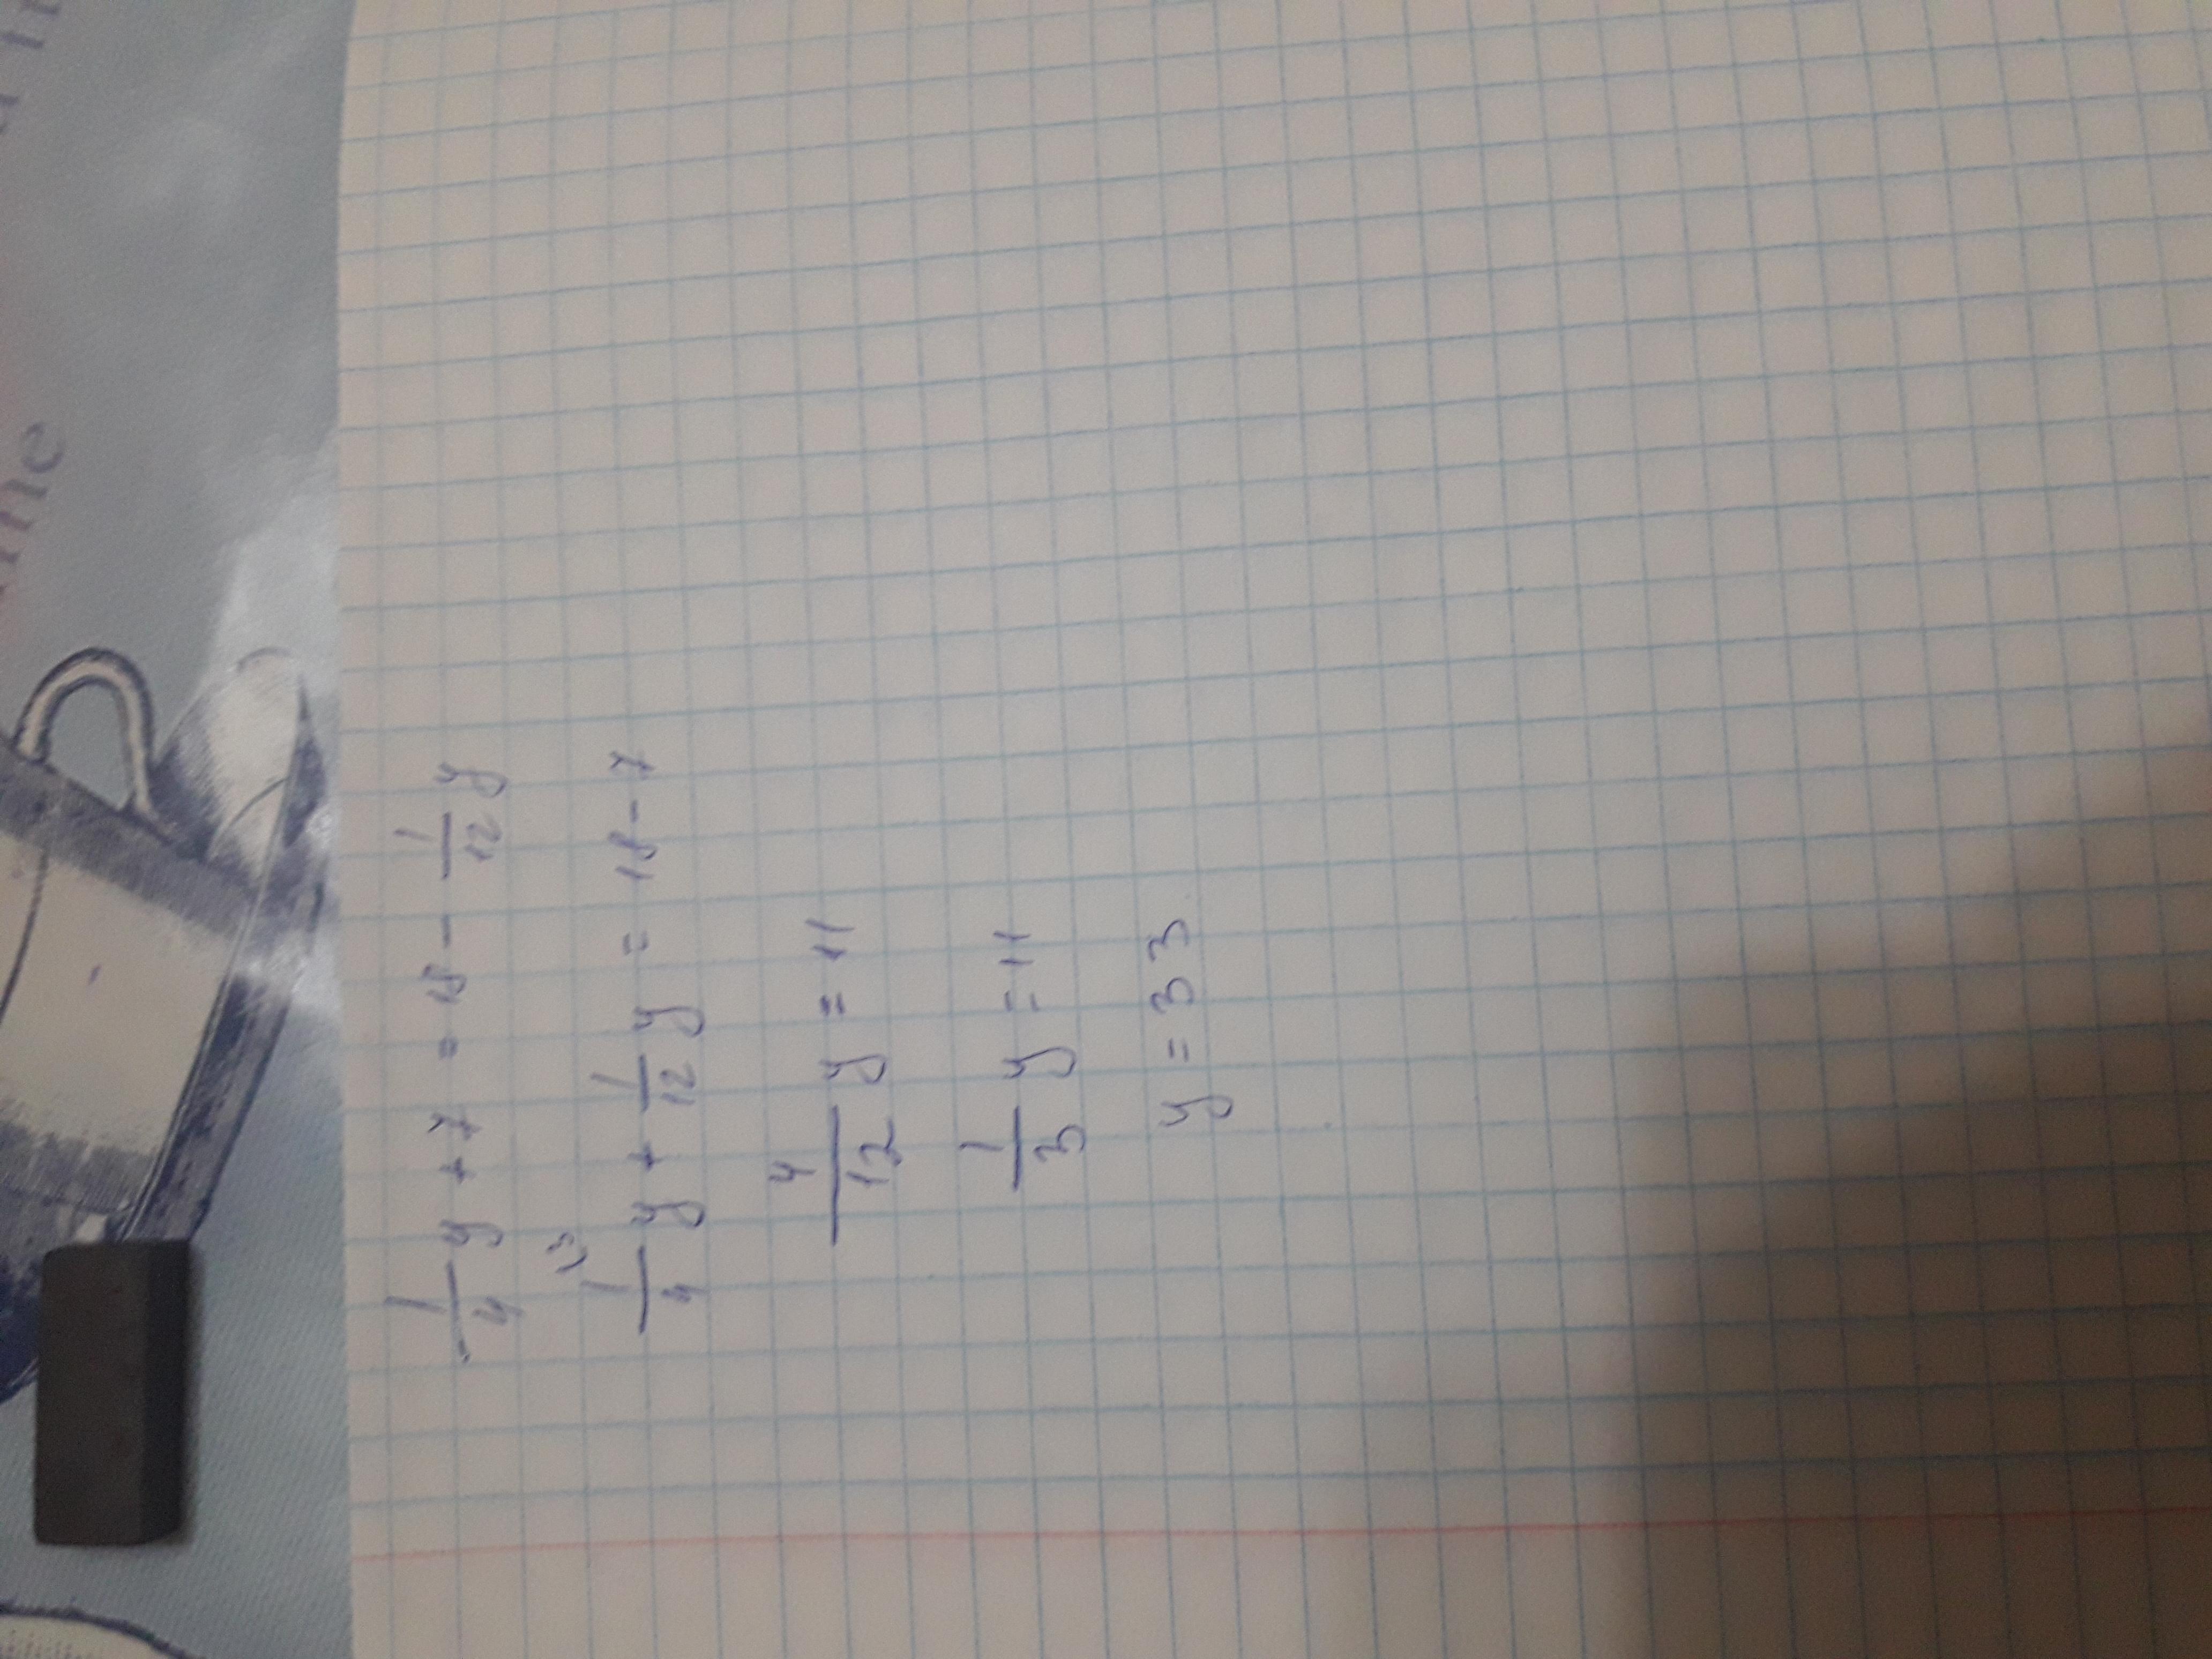 -1/4 y + 7 = 18 - 1/12 y
1/4 y + 1/12 y = 18 - 7
4/12 y = 11
1/3 y = 11
y = 33
ine